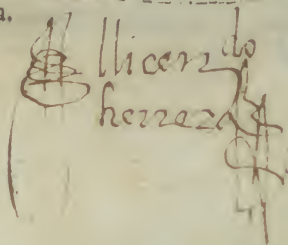 a.
El licendo
herrera